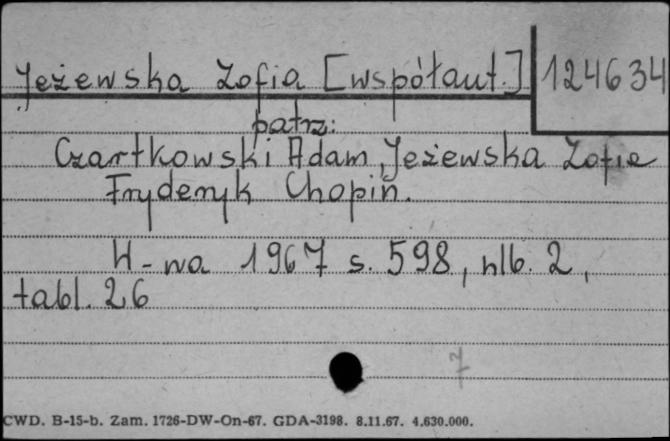 Jeżewska Zofia [współaut.] 124634
patrz:
Czartkowski Adam, Jeżewska Zofia
Fryderyk Chopin.
W-wa 1967 s. 598, nlb. 2,
tabl. 26
7
CWD. B-15-b. Zam. 1726-DW-On-67. GDA-3198. 8.11.67. 4.630.000.